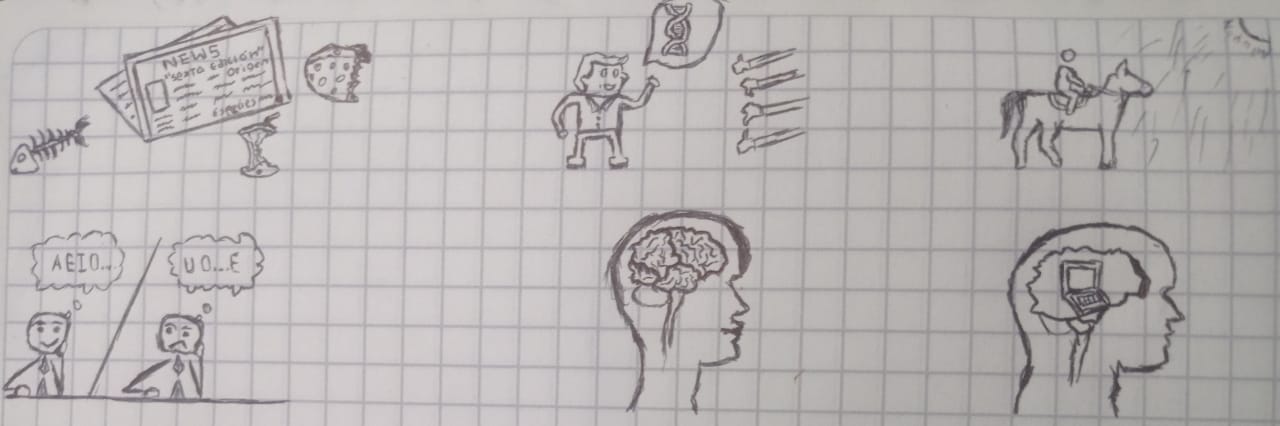 NEWS
"sexta Edición"
Origen
Especies
AEIO...
UO...E